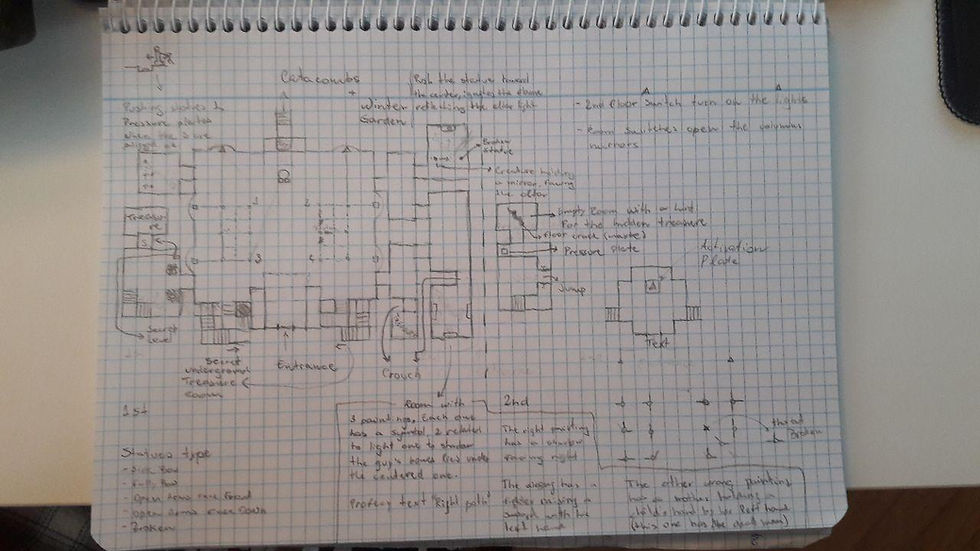 Catacombs
+
Winter
Garden
Pushing statues &
Pressure plates
when the 3 are
Push the statue toward
the center, ignites the flame
reflecting the altar light
- 2nd floor switch turn on the lights
- Room switches open the
mirrors
Broken
statue
Creature holding
a mirror, facing
the altar
Empty Room with a hint
For the hidden treasure
Floor crack
Pressure plate
Jump
Activation
Plate
Text
Treasure
S
1
2
3
4
Secret
level
Secret
underground
Treasure
room
Entrance
Crouch
1st
2nd
Room with
3 paintings, Each one
has a symbol, 2 related
to light one to shadow
the guy's bones lies under
the centered one.
text "Right path"
The right painting
has a shadow
facing right
The wrong has a
raising a
sword with his
left hand
The other wrong painting
has a mother holding a
child's hand by her left hand
(this one has the dead man)
broken
Statues type
- Open arms face Front
- open arms
- Broken